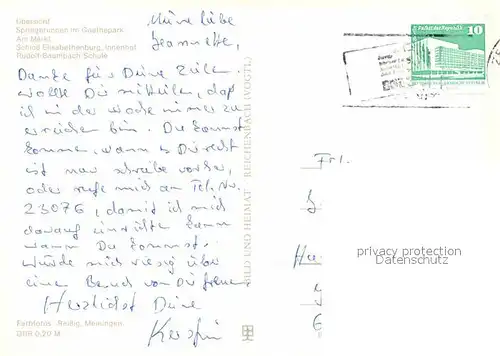 Übersicht
Springbrunnen im Goethepark
Am Markt
Schloß Elisabethenburg, Innenhof
Rudolf-Baumbach-Schule
Meine liebe
Jeannette,
Danke für Deine Zeilen.
wollte Dir mitteilen, daß
ich in der Woche immer zu
erreichen bin. Du kannst
kommen, wann es Dir recht
ist nur schreibe vorher,
oder rufe mich an Tel. Nr.
23076, damit ich mich
darauf einrichten kann
wann Du kommst.
würde mich riesig über
einen Besuch von Dir freuen.
Herzlichst Deine
Kerstin
Farbfotos: Reißig, Meiningen
DDR 0,20 M
BILD UND HEIMAT REICHENBACH (VOGTL.)
10
Frl.
privacy protection
(c)Ansichtskartenversand.com